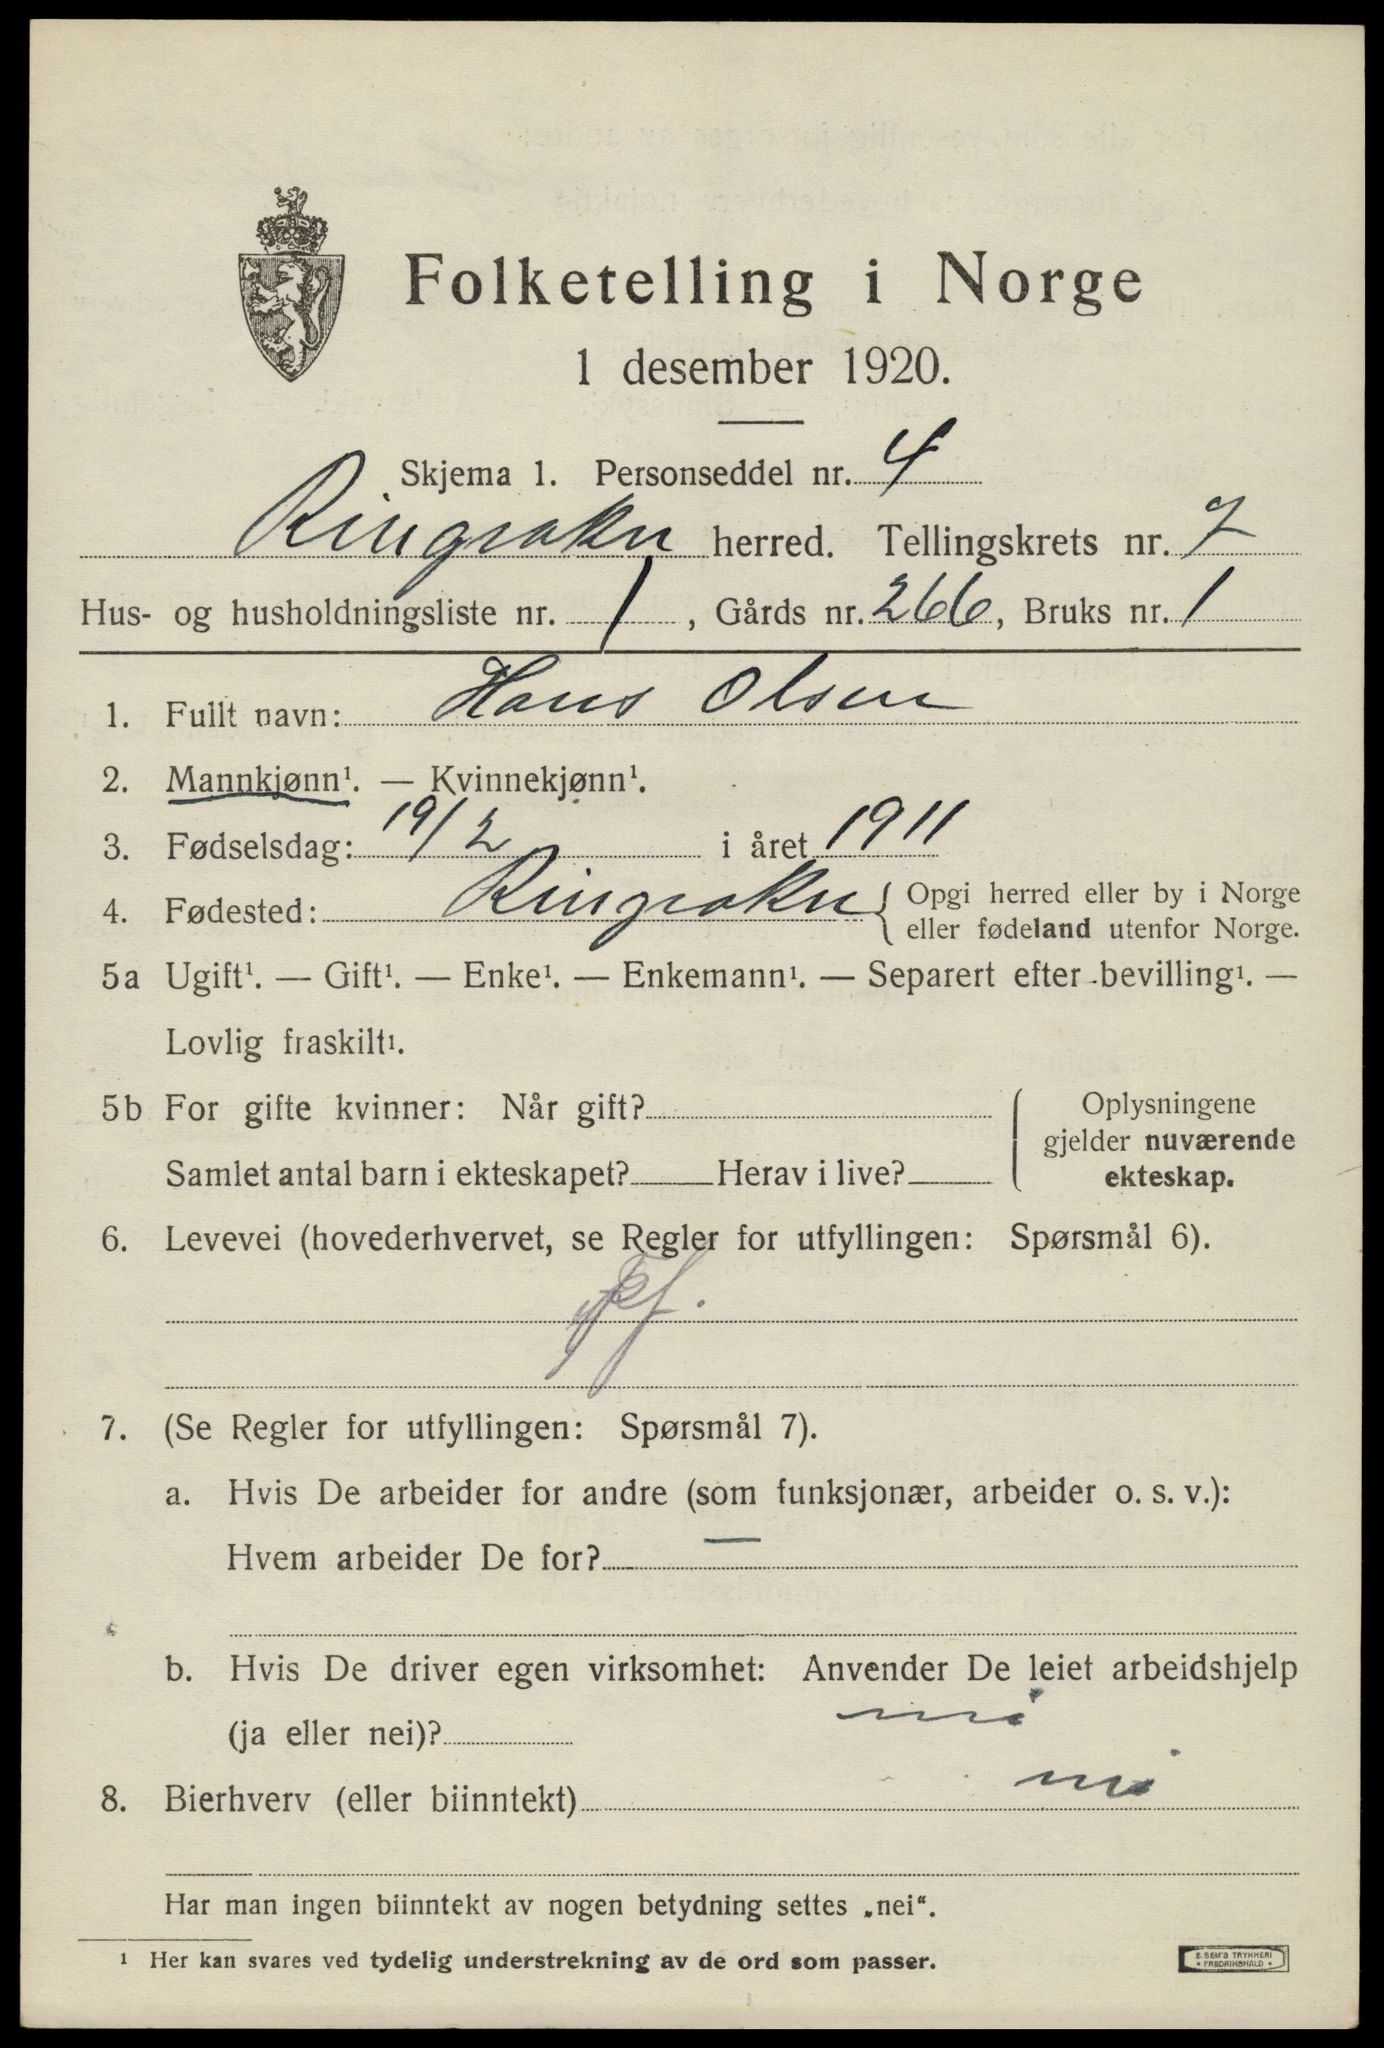 Folketelling i Norge
1 desember 1920.
Skjema 1. Personseddel nr. 4
Ringsaker herred. Tellingskrets nr. 7
Hus- og husholdningsliste nr. 1, Gårds nr. 266, Bruks nr. 1
1. Fullt navn: Hans Olsen
2. Mannkjønn¹. — Kvinnekjønn¹.
3. Fødselsdag: 19/2 i året 1911
4. Fødested: Ringsaker { Opgi herred eller by i Norge
eller fødeland utenfor Norge.
5a Ugift¹. — Gift¹. — Enke¹. — Enkemann¹. — Separert efter bevilling¹. —
Lovlig fraskilt¹.
5b For gifte kvinner: Når gift?
Samlet antal barn i ekteskapet? Herav i live?
Oplysningene
gjelder nuværende
ekteskap.
6. Levevei (hovederhvervet, se Regler for utfyllingen: Spørsmål 6).
7. (Se Regler for utfyllingen: Spørsmål 7).
a. Hvis De arbeider for andre (som funksjonær, arbeider o. s. v.):
Hvem arbeider De for? —
b. Hvis De driver egen virksomhet: Anvender De leiet arbeidshjelp
(ja eller nei)? nei
8. Bierhverv (eller biinntekt) nei
Har man ingen biinntekt av nogen betydning settes „nei“.
¹ Her kan svares ved tydelig understrekning av de ord som passer.
E. SEM'S TRYKKERI
• FREDRIKSHALD •